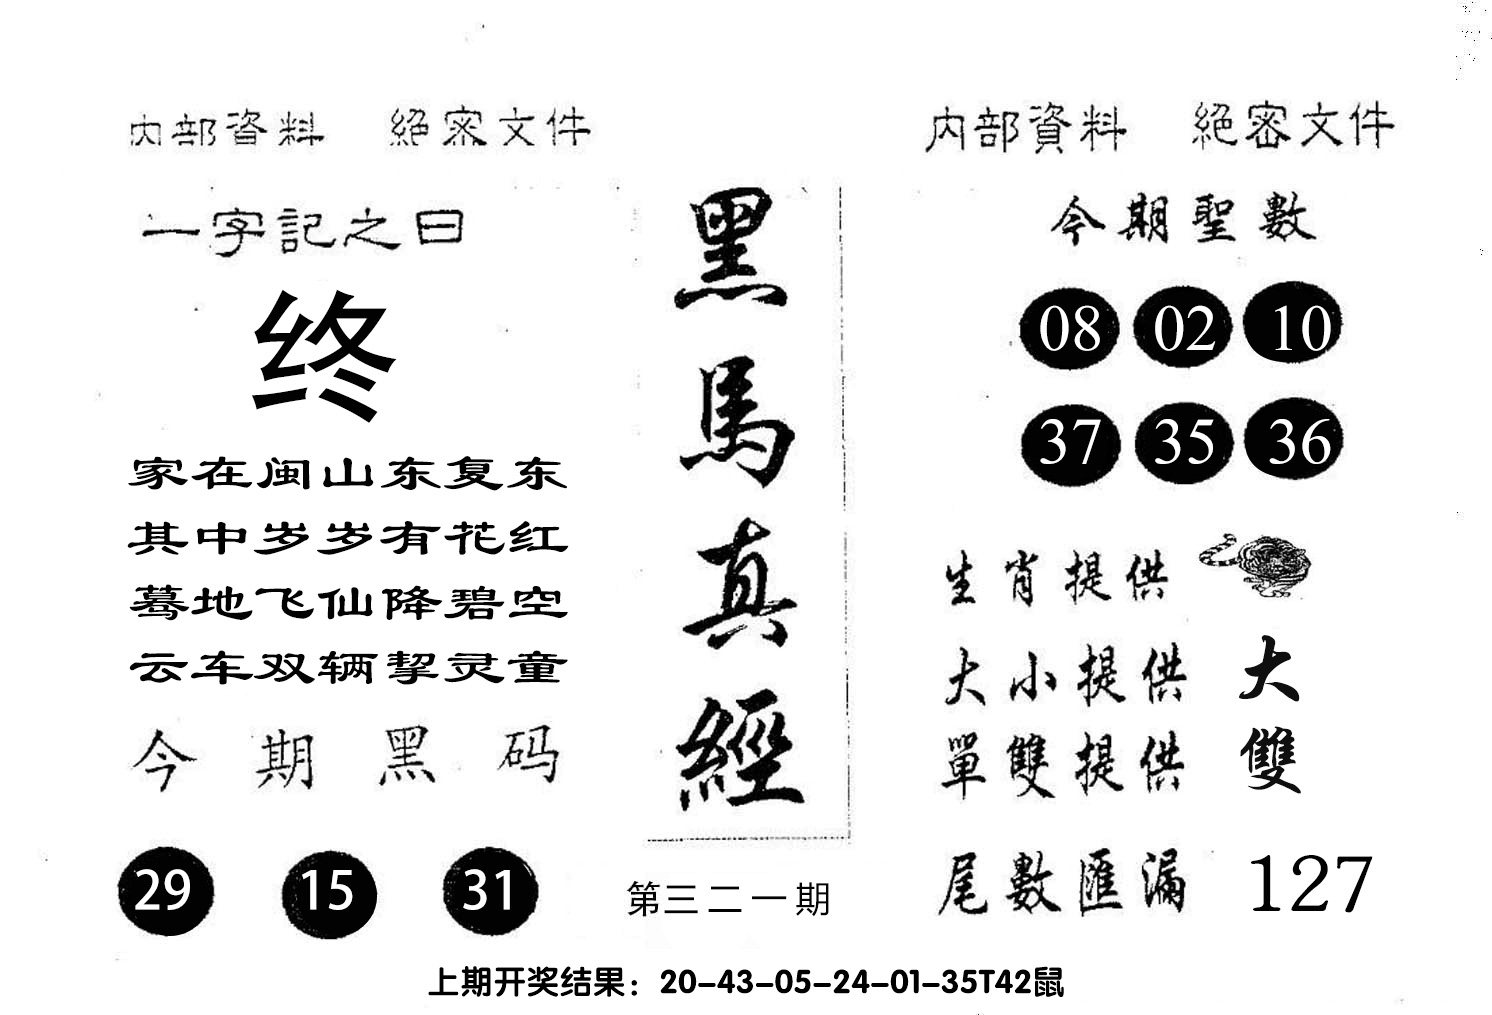 内部資料 絕密文件
一字記之曰
终
家在闽山东复东
其中岁岁有花红
蓦地飞仙降碧空
云车双辆挈灵童
今期黑码
29 15 31
黑馬真經
第三二一期
内部資料 絕密文件
今期聖數
08 02 10
37 35 36
生肖提供
大小提供 大
單雙提供 雙
尾數匯漏 127
上期开奖结果：20-43-05-24-01-35T42鼠